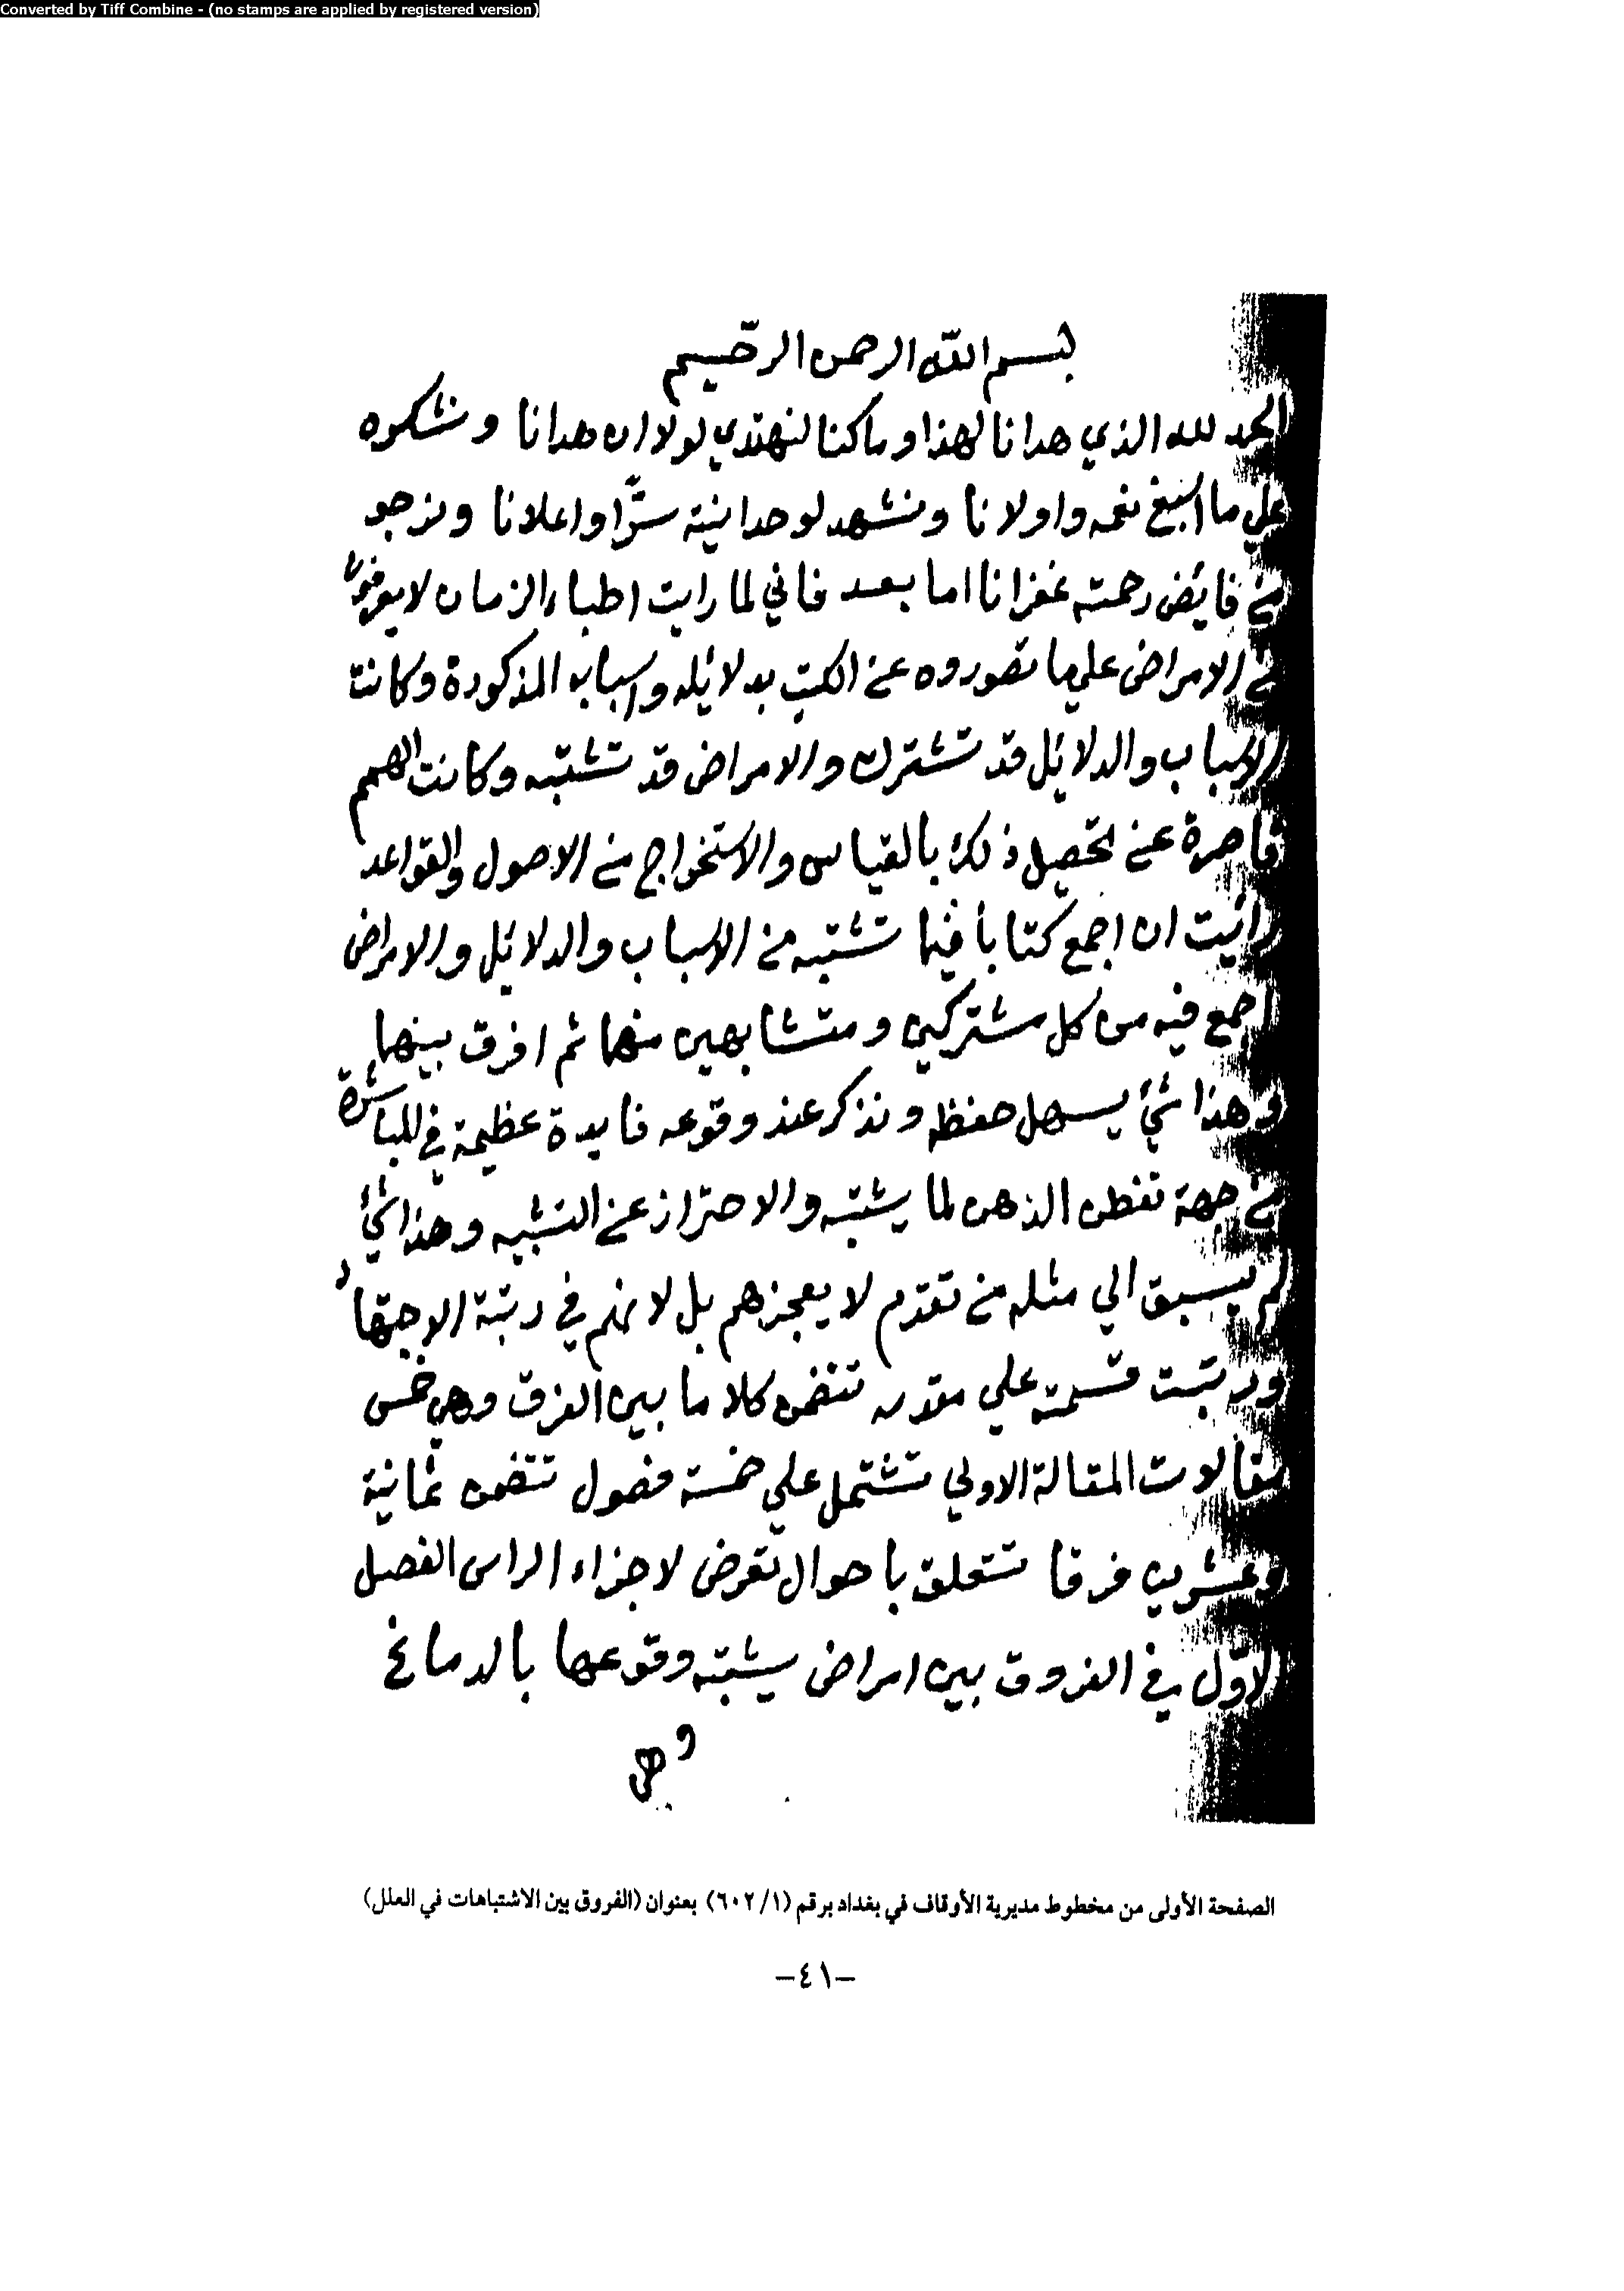 Converted by Tiff Combine - (no stamps are applied by registered version)
بسم الله الرحمن الرحيم
الحمد لله الذي هدانا لهذا وما كنا لنهتدي لولا ان هدانا ونشكره
علي ما اسبغ نعمه واولانا ونشهد لوحدانيته سرًّا واعلانا ونرجو
من فايض رحمته غفرانا اما بعد فاني لما رايت اطباء الزمان لا يعرفون
من الامراض علي ما تصوروه عن الكتب بدلائله واسبابه المذكورة وكانت
الاسباب والدلائل قد تشترك والامراض قد تشتبه وكانت الهمم
قاصرة عن تحصيل ذلك بالقياس والاستخراج من الاصول والقواعد
رائيت ان اجمع كتابا فيما تشتبه من الاسباب والدلائل والامراض
اجمع فيه من كل مشتركين ومتشابهين منهما ثم افرق بينهما
وهذا شئ يسهل حفظه ونذكر عند وقوعه فايدة عظيمة في المباشرة
من جهة تفطن الذهن لما يشتبه والاحتراز عن التشبيه وهذا شئ
لم يسبق الي مثله من تقدم لا يعجزهم بل لانهم في رتبة الاجتهاد
ورتبت قسمته علي تتضمن كلاما بين الفرق وهي خمس
مقالات المقالة الاولي تشتمل علي خمسة فصول تتضمن ثمانية
وعشرين فرقا تتعلق باحوال تعرض لاجزاء الراس الفصل
الاوّل في الفروق بين امراض يشتبه وقوعها بالدماغ
وهي
الصفحة الأولى من مخطوط مديرية الأوقاف في بغداد برقم (٦٠٢/١) بعنوان (الفروق بين الاشتباهات في العلل)
–٤١–